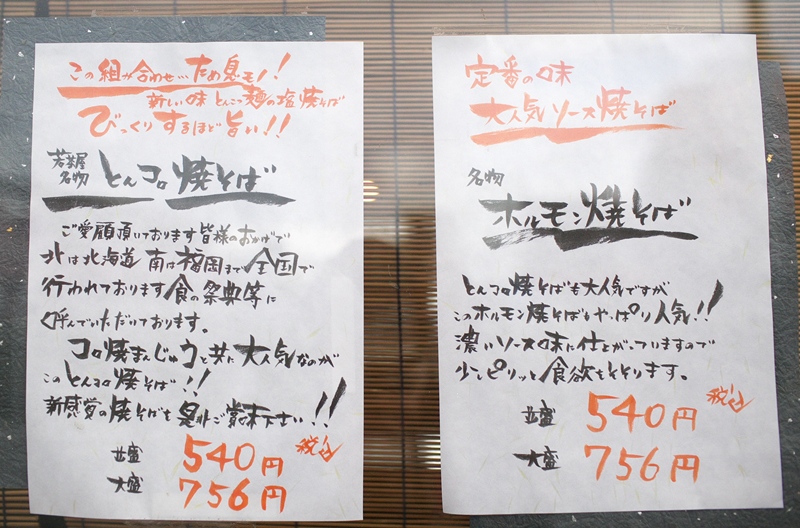 この組み合わせ…ため息モノ!
新しい味 とんこつ麺の塩焼そば
びっくりするほど旨い!!
若茶屋
名物
とんコロ焼そば
ご愛顧頂いております皆様のおかげで
北は北海道 南は福岡まで全国で
行われております食の祭典等に
呼んでいただいております。
コロ焼まんじゅうと共に大人気なのが
このとんコロ焼そば!!
新感覚の焼そばを是非ご賞味下さい!!
並盛 540円 税込
大盛 756円
定番の味
大人気ソース焼そば
名物
ホルモン焼そば
とんコロ焼そばも大人気ですが
このホルモン焼そばもやっぱり人気!!
濃いソース味に仕上がっていますので
少しピリッと食欲もそそります。
並盛 540円 税込
大盛 756円